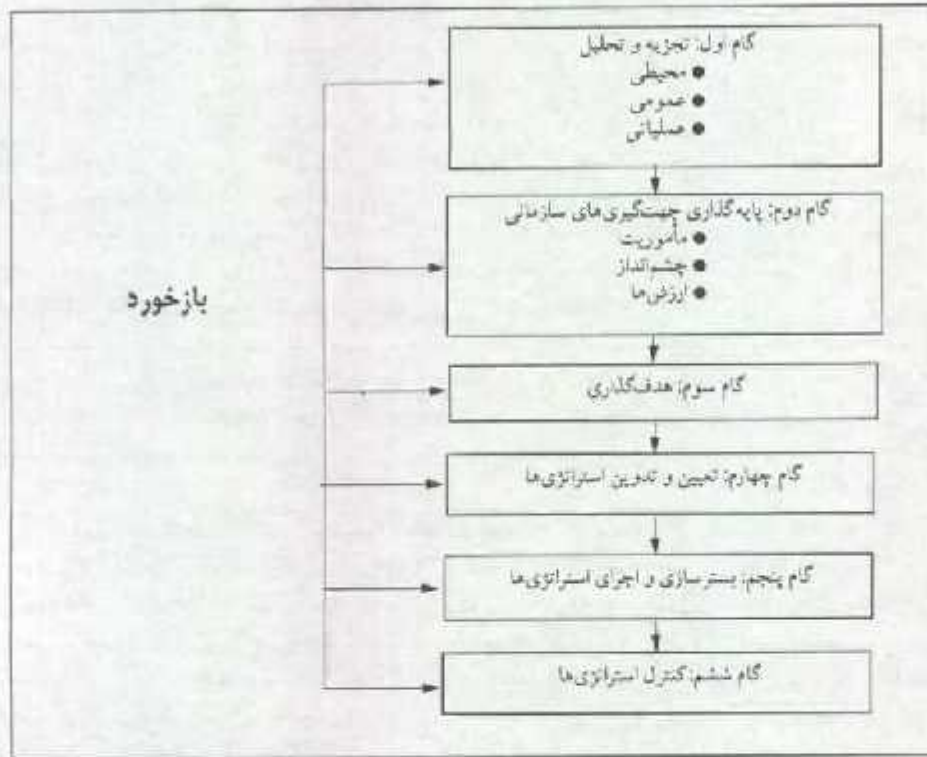 گام اول: تجزیه و تحلیل
● محیطی
● عمومی
● عملیاتی
گام دوم: پایه‌گذاری جهت‌گیری‌های سازمانی
● مأموریت
● چشم‌انداز
● ارزش‌ها
بازخورد
گام سوم: هدف‌گذاری
گام چهارم: تعیین و تدوین استراتژی‌ها
گام پنجم: بسترسازی و اجرای استراتژی‌ها
گام ششم: کنترل استراتژی‌ها